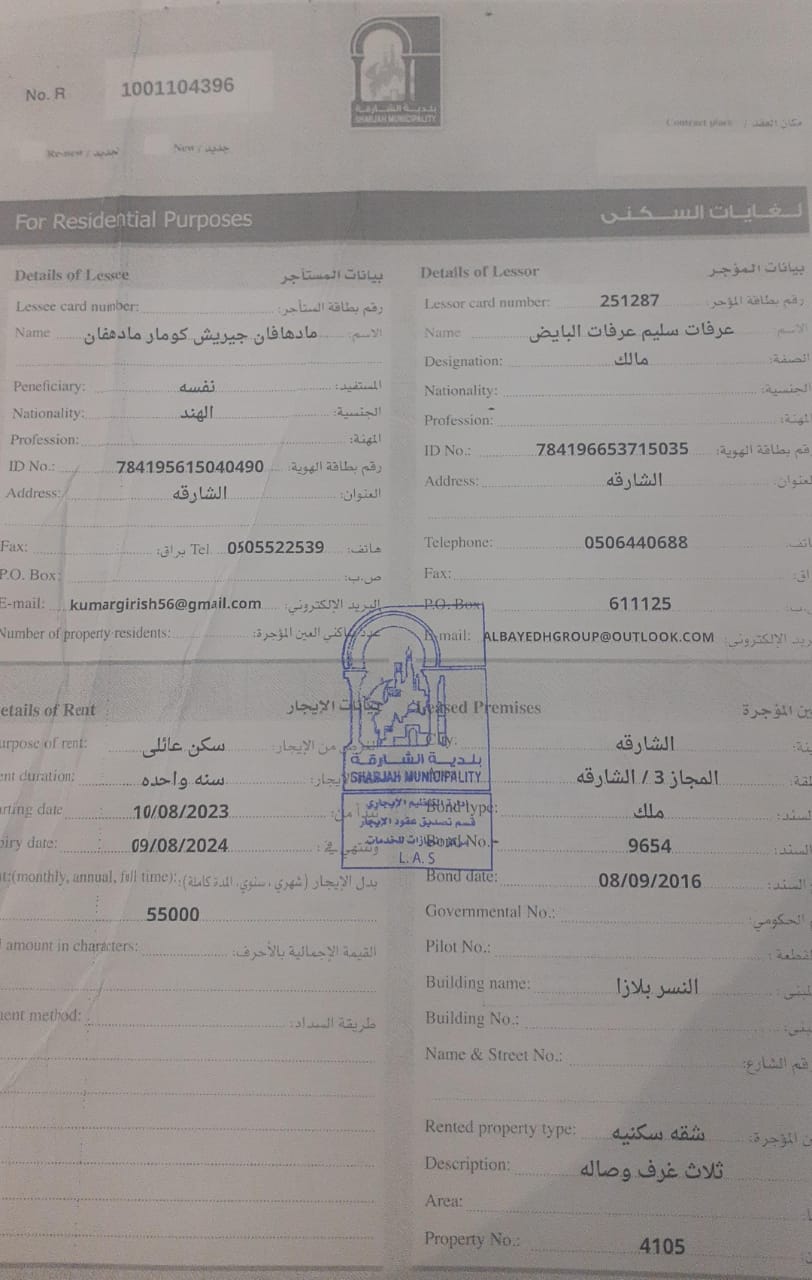 No. R 1001104396
بلدية الشارقة
SHARJAH MUNICIPALITY
Contract place / مكان العقد
Renew / تجديد New / جديد
For Residential Purposes لغايات السكنى
Details of Lessee بيانات المستأجر
Lessee card number: رقم بطاقة المستأجر:
Name مادهافان جيريش كومار مادهفان الاسم:
Peneficiary: نفسه المستفيد:
Nationality: الهند الجنسية:
Profession: المهنة:
ID No.: 784195615040490 رقم بطاقة الهوية:
Address: الشارقه العنوان:
Fax: براق: Tel 0505522539 هاتف:
P.O. Box: ص.ب:
E-mail: kumargirish56@gmail.com البريد الإلكتروني:
Number of property residents: عدد ساكني العين المؤجرة:
Details of Lessor بيانات المؤجر
Lessor card number: 251287 رقم بطاقة المؤجر:
Name عرفات سليم عرفات البايض الاسم:
Designation: مالك الصفة:
Nationality: الجنسية:
Profession: المهنة:
ID No.: 784196653715035 رقم بطاقة الهوية:
Address: الشارقه العنوان:
Telephone: 0506440688
Fax:
P.O. Box 611125
E-mail: ALBAYEDHGROUP@OUTLOOK.COM بريد الإلكتروني:
etails of Rent بيانات الإيجار
urpose of rent: سكن عائلى من الإيجار:
ent duration: سنه واحده الإيجار:
rting date 10/08/2023
piry date: 09/08/2024 وتنتهي في:
t:(monthly, annual, full time): بدل الإيجار (شهري، سنوي، المدة كاملة):
55000
amount in characters: القيمة الإجمالية بالأحرف:
ent method: طريقة السداد:
بلدية الشارقة
SHARJAH MUNICIPALITY
قسم تصديق عقود الإيجار
L.A.S
Leased Premises ين المؤجرة
الشارقه
المجاز 3 / الشارقه
Bond type: ملك السند:
Bond No. 9654 السند:
Bond date: 08/09/2016 السند:
Governmental No.: الحكومي:
Pilot No.: لقطعة:
Building name: النسر بلازا
Building No.:
Name & Street No.: رقم الشارع:
Rented property type: شقه سكنيه ن المؤجرة:
Description: ثلاث غرف وصاله
Area:
Property No.: 4105